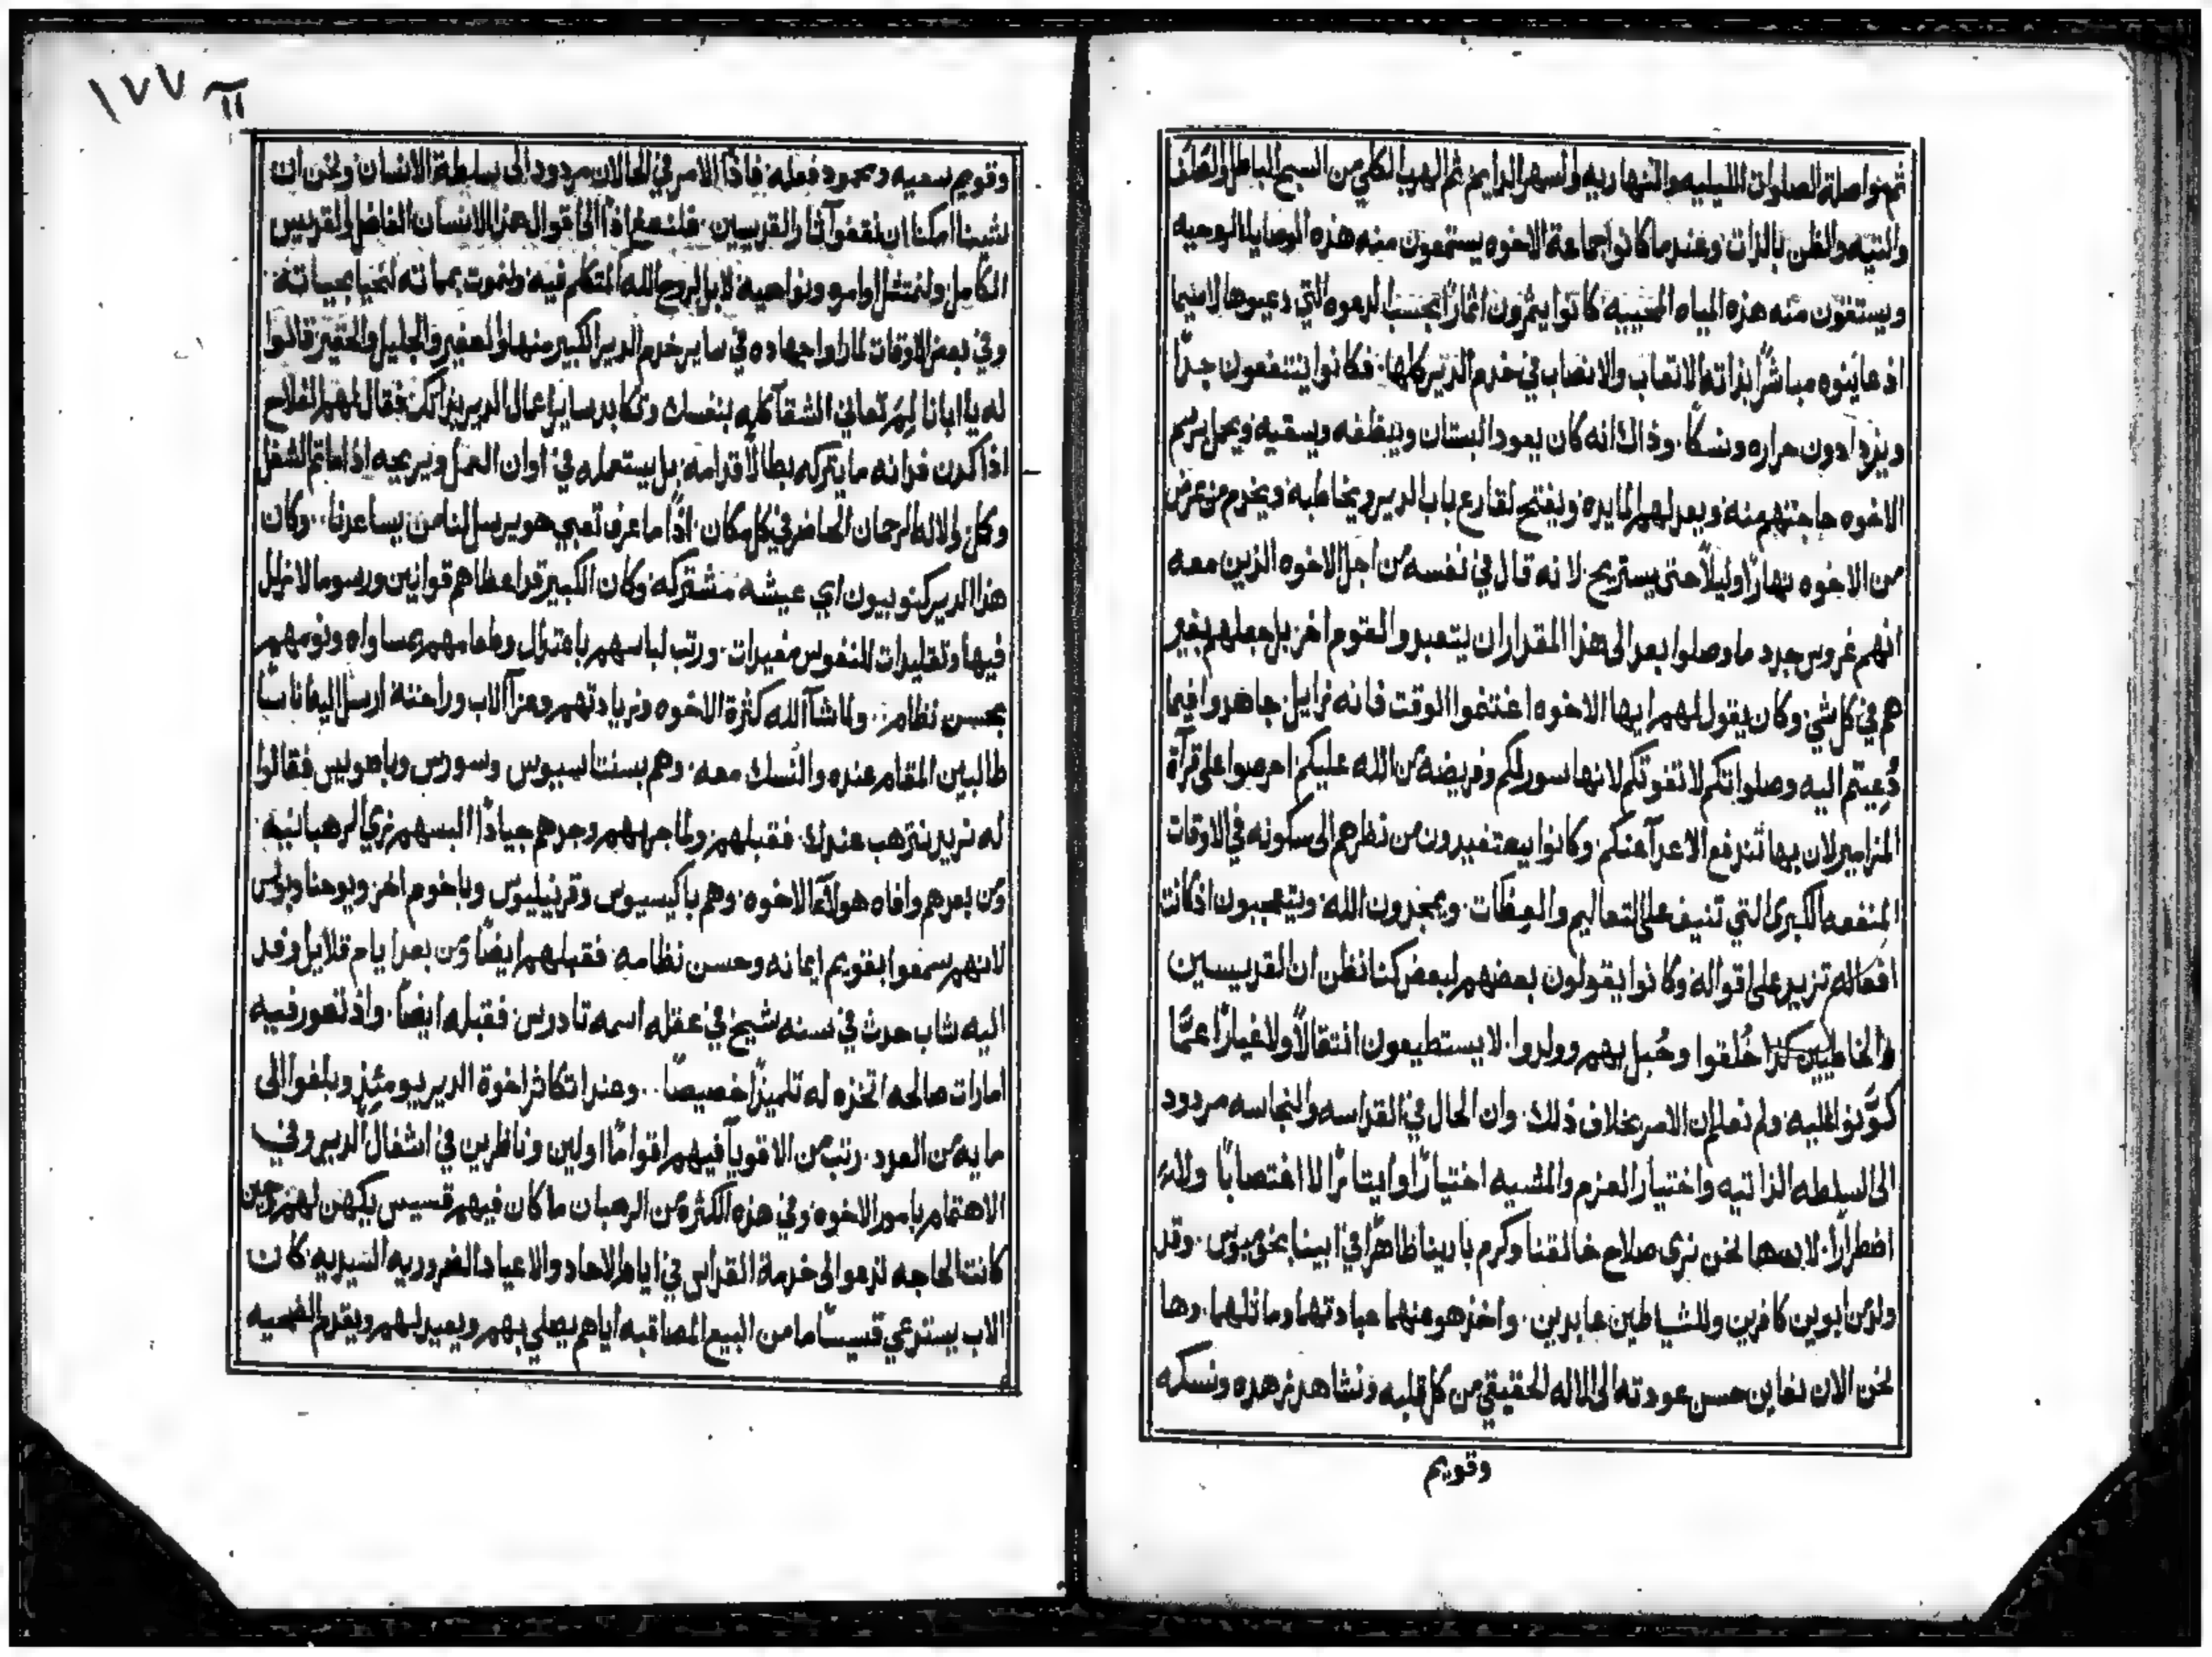 ثم مواصلة الصلوات الليليه والنهاريه والسهر الدايم ثم الهرب الكلي من السبح الباطل والصلف
والتيه والظن بالذات وعندما كانوا جماعة الاخوه يستمعون منه هذه الوصايا الروحيه
ويستقون منه هذه المياه المحييه كانوا يثمرون اثمارًا بحسب الدعوه التي دعيوها لاسيما
اذ عاينوه مباشرًا بذاته الاتعاب والانصاب في خدم الدير كلها. فكانوا ينتفعون جدًا
ويزدادون حراره ونسكًا. وذاك انه كان يعود البستان وينظفه ويسقيه ويعمل برسم
الاخوه حاجتهم منه ويعد لهم المايده ويفتح لقارع باب الدير ويخاطبه ويخدم من مرض
من الاخوه نهارًا وليلًا حتى يستريح. لانه قال في نفسه من اجل الاخوه الذين معه
انهم غروس جدد ما وصلوا بعد الى هذا المقدار ان يتعبدوا لقوم اخر بل جعلهم بغير
هم في كل شي. وكان يقول لهم ايها الاخوه اغتنموا الوقت فانه زايل جاهدوا فيما
دُعيتم اليه وصلواتكم لا تفوتكم لانها سور لكم وفريضه من الله عليكم احرصوا على قرآة
المزامير لان بها تندفع الاعدآ عنكم. وكانوا يستفيدون من نظرهم الى سكونه في الاوقات
المنفعه الكبرى التي تنيف على التعاليم والعظات. ويمجدون الله. ويتعجبون اذ كانت
افعاله تزيد على اقواله وكانوا يقولون بعضهم لبعض كنا نظن ان القديسين
والخاطيين كذا خُلقوا وجُبل بهم وولدوا. لا يستطيعون انتقالًا ولا غيارًا عمَّا
كوّنوا عليه ولم نعلم ان الامر بخلاف ذلك. وان الحال في القداسه والنجاسه مردود
الى السلطه الذاتيه واختيار العزم والمشيه اختيارًا وايثارًا لا اغتصابًا ولا
اضطرارًا. لا نحن نرى صلاح خالقنا وكرم بارينا ظاهرًا في ابينا بخوميوس. وقد
ولد من ابوين كافرين وللشياطين عابدين. واخذ هو عنهما عبادتهما وماثلهما. وها
نحن الان نعاين حسن عودته الى الاله الحقيقي من كل قلبه ونشاهد زهده ونسكه
وقويم
١٧٧
وقويم سعيه ومحمود فعله. فاذًا الامر في الحالان مردود الى سلطة الانسان ونحن ان
شينا امكنا ان نقفوا آثار القديسين. فلنصغ اذًا الى اقوال هذا الانسان الفاضل والقديس
الكامل ولنمتثل اوامره ونواهيه لا بل لروح الله المتكلم فيه ولنموت بمماته لنحيا بحياته.
وفي بعض الاوقات لما راوا جهاده في ساير خدم الدير الكبير منها والصغير والجليل والحقير قالوا
له يا ابانا لِمَ تعاني الشقآ كله بنفسك وتكابد ساير اعمال الدير بذاتك فقال لهم الفلاح
اذا كدن فدانه ما يتركه بطالًا قدامه. بل يستعمله في اوان العمل ويريحه اذا ما تم الشغل
وكل والاله الرحمان الحاضر في كل مكان. اذًا ما عرف تعبي هو يرسل لنا من يساعدنا.. وكان
هذا الدير كنوبيون اي عيشه مشتركه. وكان الكبير قد اعطاهم قوانين ورسوما لا خلل
فيها وتقليدات للنفوس مفيدات. ورتب لباسهم باعتدال وطعامهم بمساواه ونومهم
بحسن نظام.. ولما شآ الله كثرة الاخوه وزيادتهم وعزآ الاب وراحته ارسل اليه اناسًا
طالبين المقام عنده والنسك معه. وهم بسنتاسيوس وسورس وباصويس فقالوا
له نريد نترهب عندك. فقبلهم ولما جربهم وجدهم جيادًا البسهم زي الرهبانيه.
ومن بعدهم وافاه هولآء الاخوه. وهم باكيسيوس وقرنيليوس وباخوم اخر ويوحنا وبولس
لانهم سمعوا بقويم ايمانه وحسن نظامه. فقبلهم ايضًا ومن بعد ايام قلايل وفد
اليه شاب حدث في سنه شيخ في عقله اسمه تادرس. فقبله ايضًا. واذ تصور فيه
امارات صالحه اتخذه له تلميذًا خصيصًا.. وعندا تكاثر اخوة الدير يوميذٍ وبلغوا الى
مايه من العدد. رتب من الاقويآ فيهم اقوامًا اولين وناظرين في اشغال الدير وفي
الاهتمام بامور الاخوه. وفي هذه الكثره من الرهبان ما كان فيهم قسيس يكهن لهم. وحين
كانت الحاجه تدعوا الى خدمة القداس في ايام الاحاد والاعياد الضروريه السيديه كان
الاب يستدعي قسيسًا ما من البيع المصاقبه اياهم يصلي بهم ويعيد لهم ويقدم الضحيه